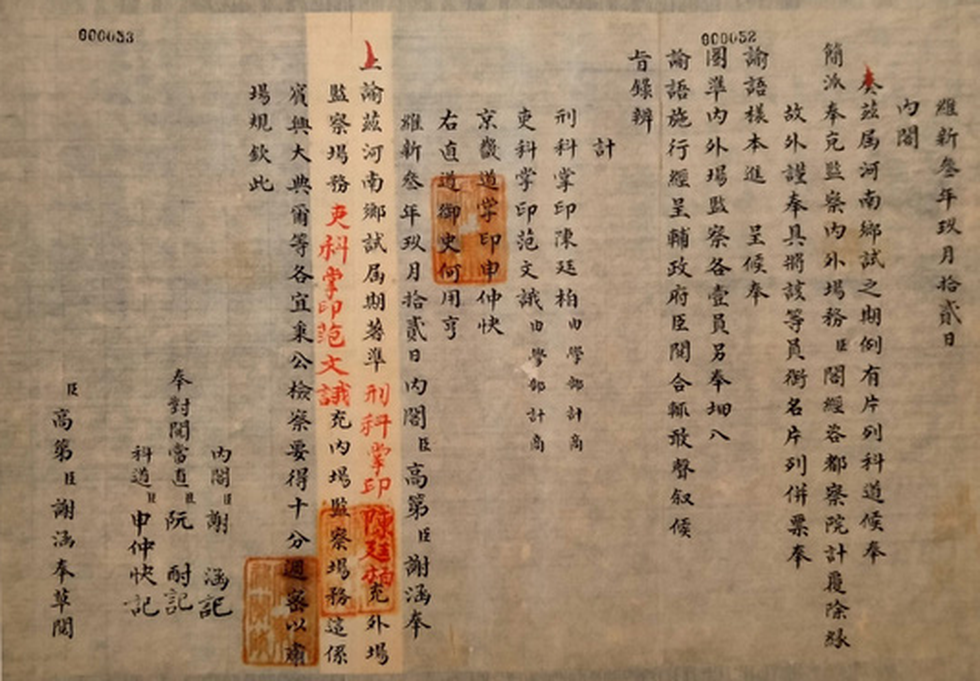 000053
000052
維新叁年玖月拾貳日
內閣
奏茲屆河南鄉試之期例有片列科道候奉
簡派奉充監察內外場務臣閣經咨都察院計覆除緣
故外謹奉具將該等員銜名片列併票奉
諭語樣本進 呈候奉
圈準內外場監察各壹員另奉㘨八
諭語施行經呈輔政府臣閱合輒敢聲叙候
旨錄辨
計
刑科掌印陳廷柏由學部計商
吏科掌印范文議由學部計商
京畿道掌印申仲快
右直道御史何用亨
維新叁年玖月拾貳日內閣臣高第臣謝涵奉
上諭茲河南鄉試屆期著準刑科掌印陳廷柏充外場
監察場務吏科掌印范文議充內場監察場務這係
賓興大典爾等各宜秉公檢察要得十分週密以肅
場規欽此
內閣臣謝涵記
奉對閱當直臣阮酎記
科道臣申仲快記
臣高第臣謝涵奉草閱